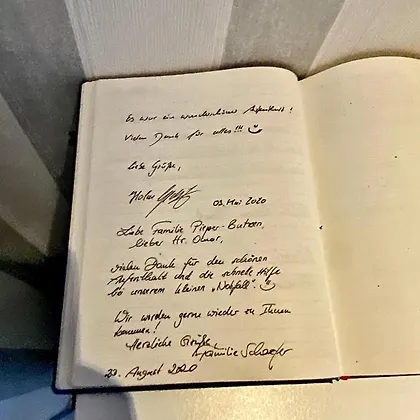 Es war ein wunderschöner Aufenthalt!
Vielen Dank für alles!!!
Liebe Grüße,
03. Mai 2020
Liebe Familie Pieper-Butzon,
lieber Hr. Omar,
vielen Dank für den schönen
Aufenthalt und die schnelle Hilfe
bei unserem kleinen „Notfall".
Wir werden gerne wieder zu Ihnen
kommen!
Herzliche Grüße,
Familie Schaefer
23. August 2020